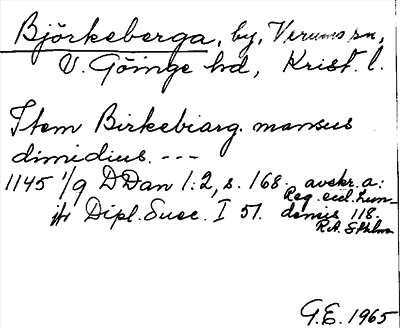 Björkeberga, by, Verums sn,
V. Göinge hd, Krist. l.
Item Birkebiarg. mansus
dimidius. ---
1145 1/9 DDan 1:2, s. 168 avskr. a:
Reg. eccl. Lun-
jfr Dipl. Suec. I 51. densis 118.
RA. Sthlm
G.E. 1965